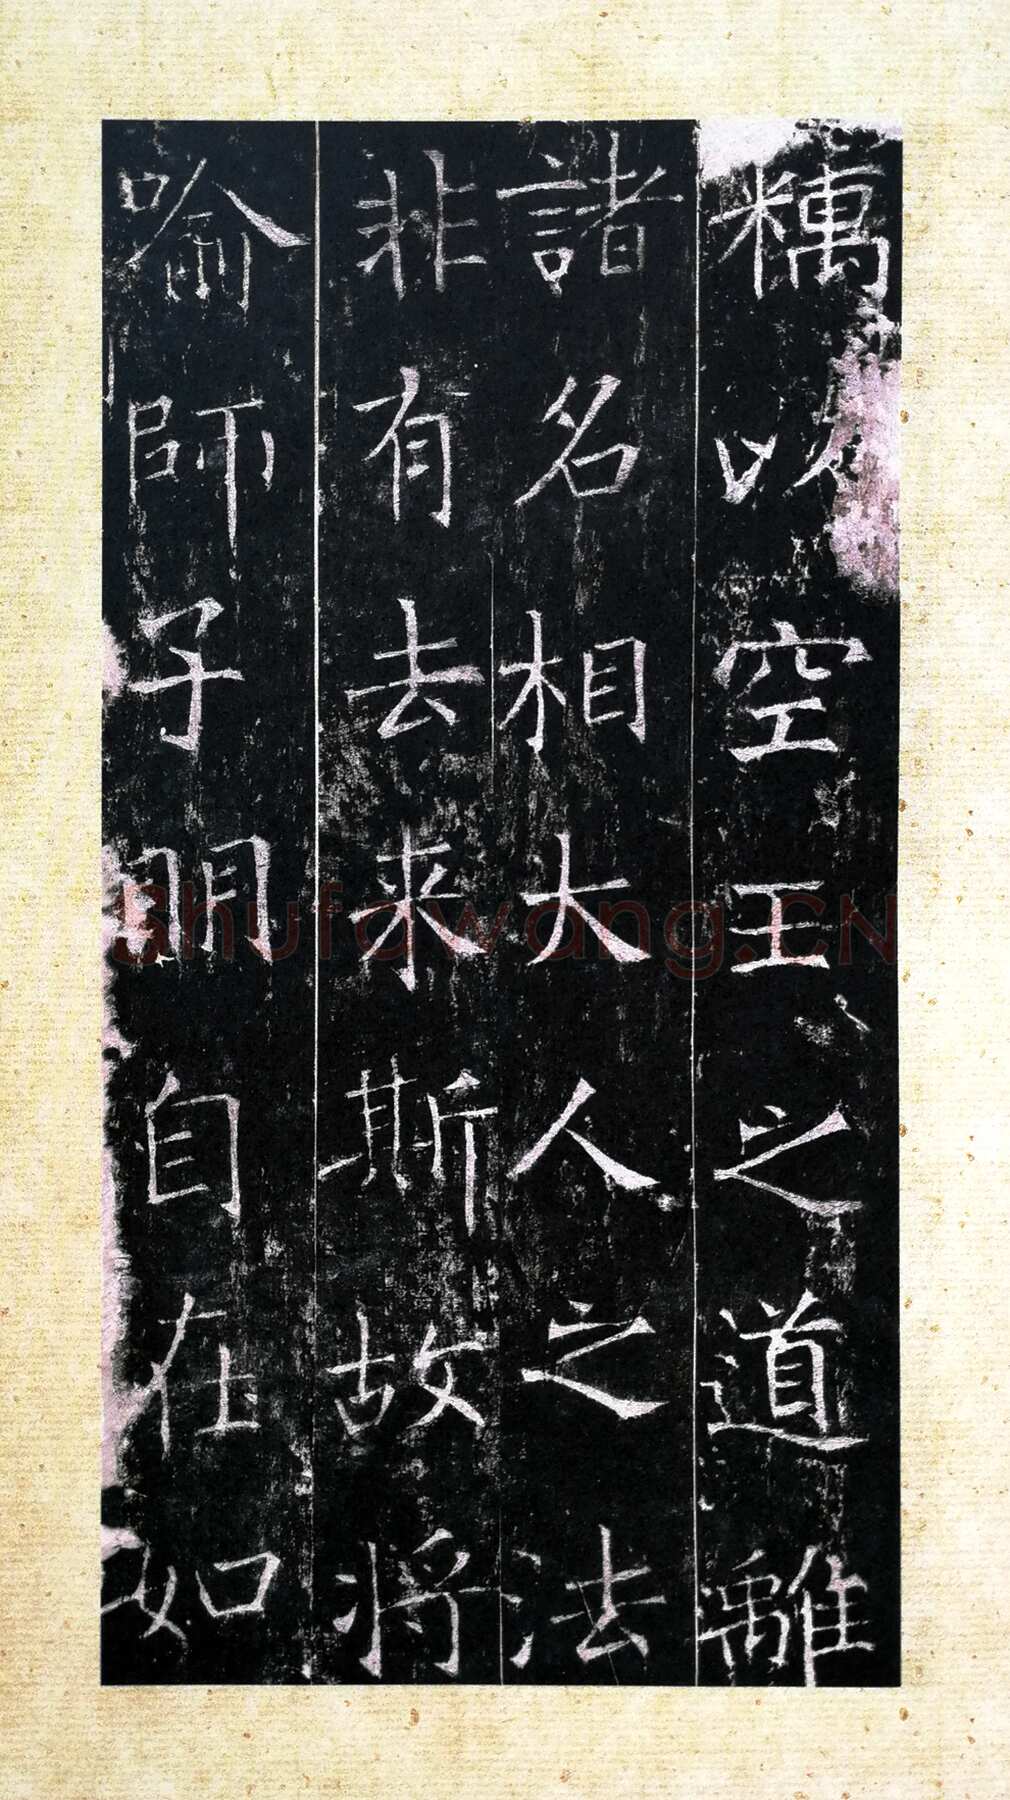 糲以空王之道離
諸名相大人之法
非有去来斯故将
喻師子明自在如
Shufawang.CN